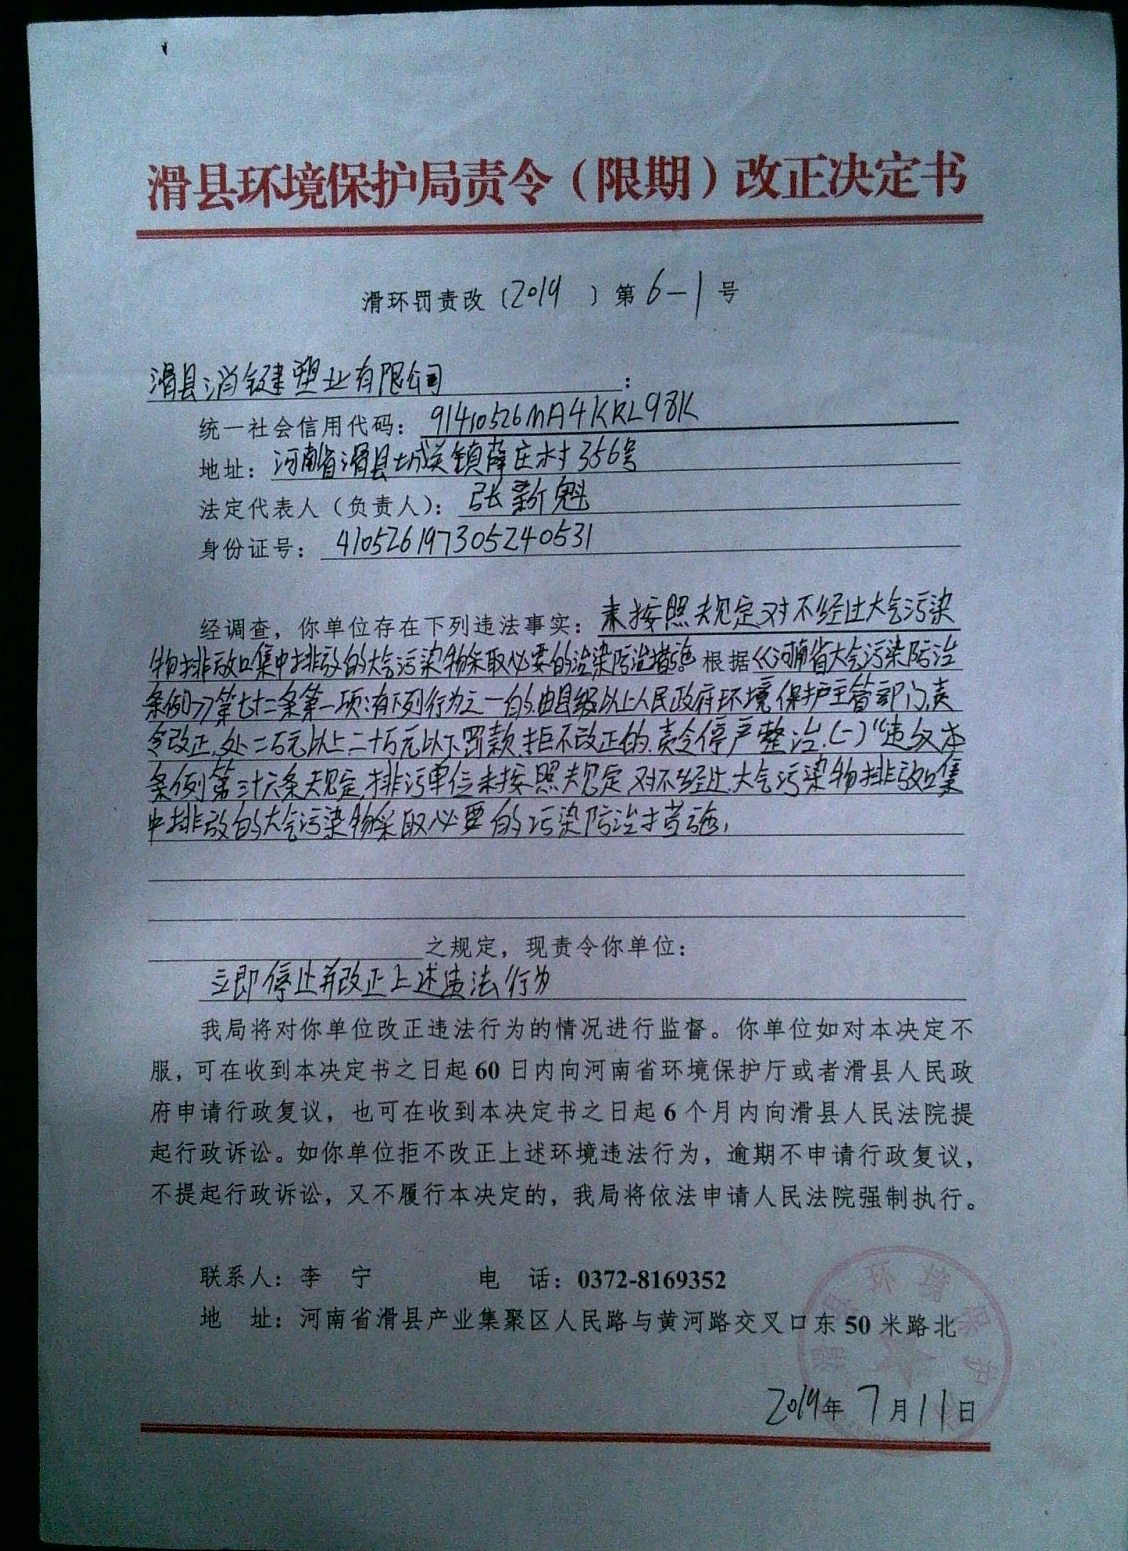 滑县环境保护局责令（限期）改正决定书
滑环罚责改〔2019〕第6-1号
滑县消建塑业有限公司：
统一社会信用代码：91410526MA4KRL98K
地址：河南省滑县城关镇薛庄村356号
法定代表人（负责人）：张新魁
身份证号：410526197305240531
经调查，你单位存在下列违法事实：未按照规定对不经过大气污染
物排放口集中排放的大气污染物采取必要的污染防治措施 根据《河南省大气污染防治
条例》第七十二条第一项:有下列行为之一的,由县级以上人民政府环境保护主管部门责
令改正,处二万元以上二十万元以下罚款,拒不改正的,责令停产整治.(一)“违反本
条例第三十六条规定,排污单位未按照规定对不经过大气污染物排放口集
中排放的大气污染物采取必要的污染防治措施,
之规定，现责令你单位：
立即停止并改正上述违法行为
我局将对你单位改正违法行为的情况进行监督。你单位如对本决定不
服，可在收到本决定书之日起60日内向河南省环境保护厅或者滑县人民政
府申请行政复议，也可在收到本决定书之日起6个月内向滑县人民法院提
起行政诉讼。如你单位拒不改正上述环境违法行为，逾期不申请行政复议，
不提起行政诉讼，又不履行本决定的，我局将依法申请人民法院强制执行。
联系人：李 宁 电 话：0372-8169352
地 址：河南省滑县产业集聚区人民路与黄河路交叉口东50米路北
2019年7月11日